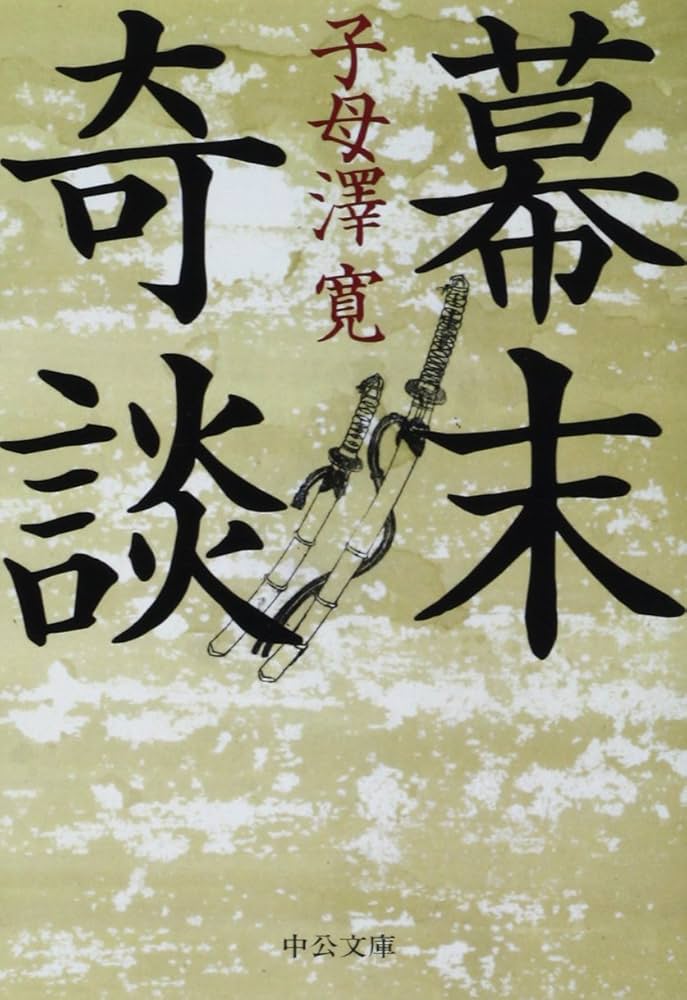 幕末
奇談
子母澤 寛
中公文庫